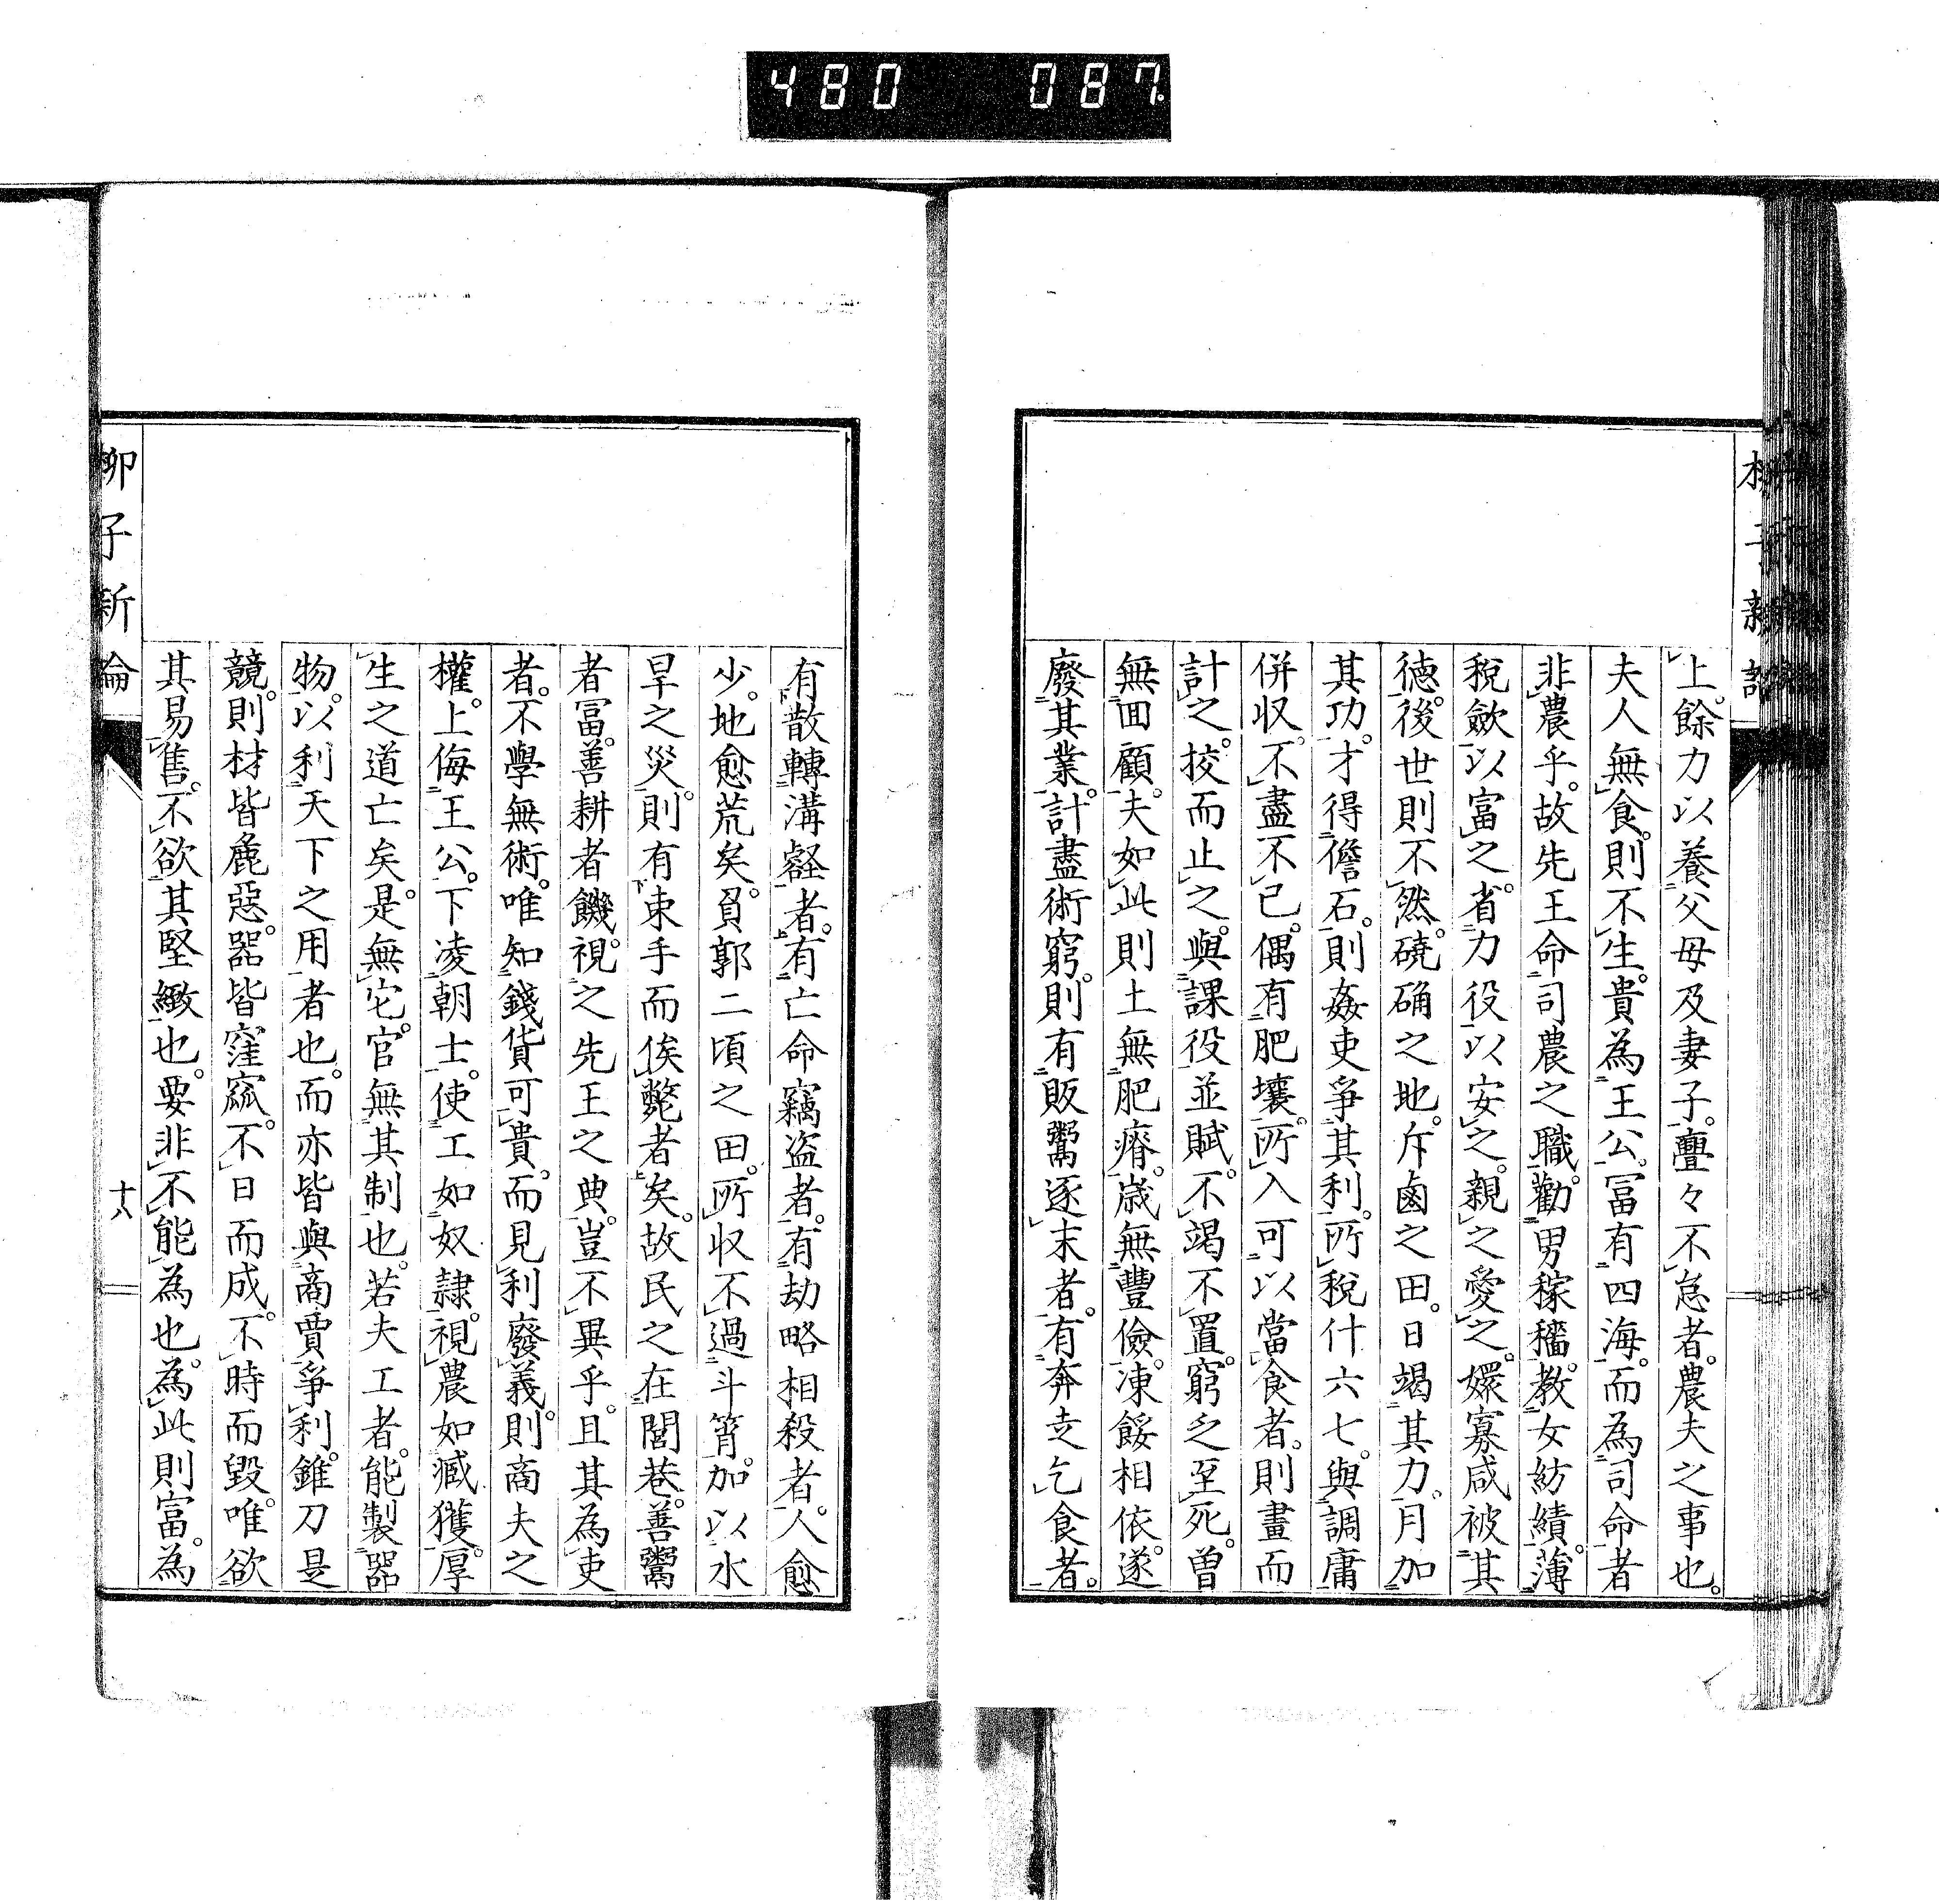 480 087
上。餘力以養父母及妻子。亹々不怠者。農夫之事也。
夫人無食。則不生。貴為王公。冨有四海。而為司命者
非農乎。故先王命司農之職。勸男稼穡。教女紡績。薄
稅歛以富之。省力役以安之。親之愛之。嬛寡咸被其
德。後世則不然。磽确之地。斥鹵之田。日竭其力。月加
其功。才得儋石。則姦吏爭其利。所稅什六七。與調庸
併収。不盡不已。偶有肥壤。所入可以當食者。則畫而
計之。挍而止之。與課役並賦。不竭不置。窮乏至死。曽
無回顧。夫如此則土無肥瘠。歳無豐儉。凍餒相依。遂
廢其業。計盡術窮。則有販鬻逐末者。有奔走乞食者。
有散轉溝壑者。有亡命竊盗者。有劫略相殺者。人愈
少。地愈荒矣。負郭二頃之田。所収不過斗筲。加以水
旱之災。則有束手而俟斃者矣。故民之在閭巷。善鬻
者冨。善耕者饑。視之先王之典。豈不異乎。且其為吏
者。不學無術。唯知錢貨可貴。而見利廢義。則商夫之
權。上侮王公。下凌朝士。使工如奴隷。視農如臧獲。厚
生之道亡矣。是無它。官無其制也。若夫工者。能製器
物。以利天下之用者也。而亦皆與商賈爭利。錐刀是
競。則材皆麁惡。器皆窪窳。不日而成。不時而毀。唯欲
其易售。不欲其堅緻也。要非不能為也。為此則富。為
柳子新論
十八